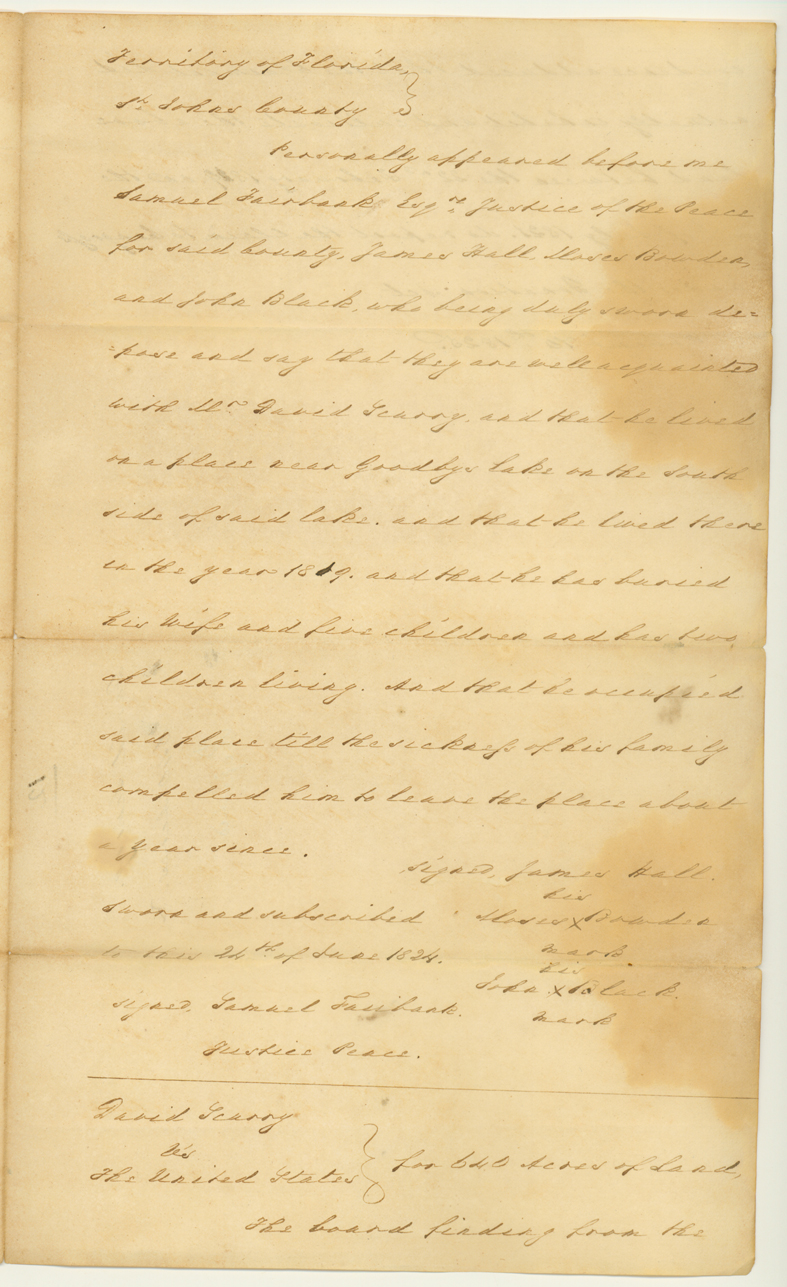 Territory of Florida,
St. Johns County
Personally appeared before me
Samuel Fairbank Esqre. Justice of the Peace
for said County, James Hall, Moses Bowden,
and John Black, who being duly sworn de=
=pose and say that they are well acquainted
with Mr. David Scurry, and that he lived
on a place near Goodbys Lake on the South
side of said lake. and that he lived there
in the year 1819. and that he has buried
his Wife and five children and has two
children living. And that he occupied
said place till the sickness of his family
compelled him to leave the place about
a year since.
signed, James Hall.
his
Moses X Bowden
mark
his
John X Black.
mark
Sworn and subscribed
to this 24th of June 1824.
signed, Samuel Fairbank.
Justice Peace.
David Scurry
Vs
The United States
for 640 Acres of Land,
The board finding from the